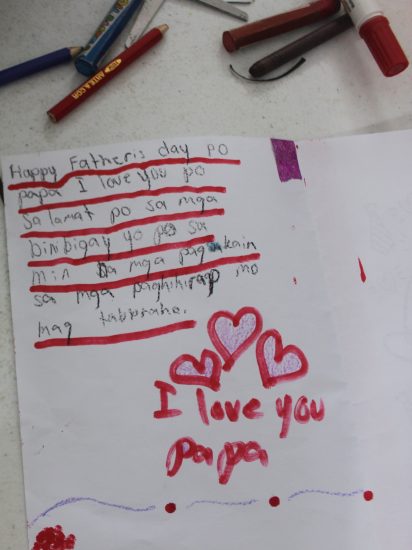 Happy Father's day po
papa I love you po
salamat po sa mga
binibigay yo po sa
min na mga pagkakain
sa mga paghihirap mo
mag tabraho.
I love you
papa